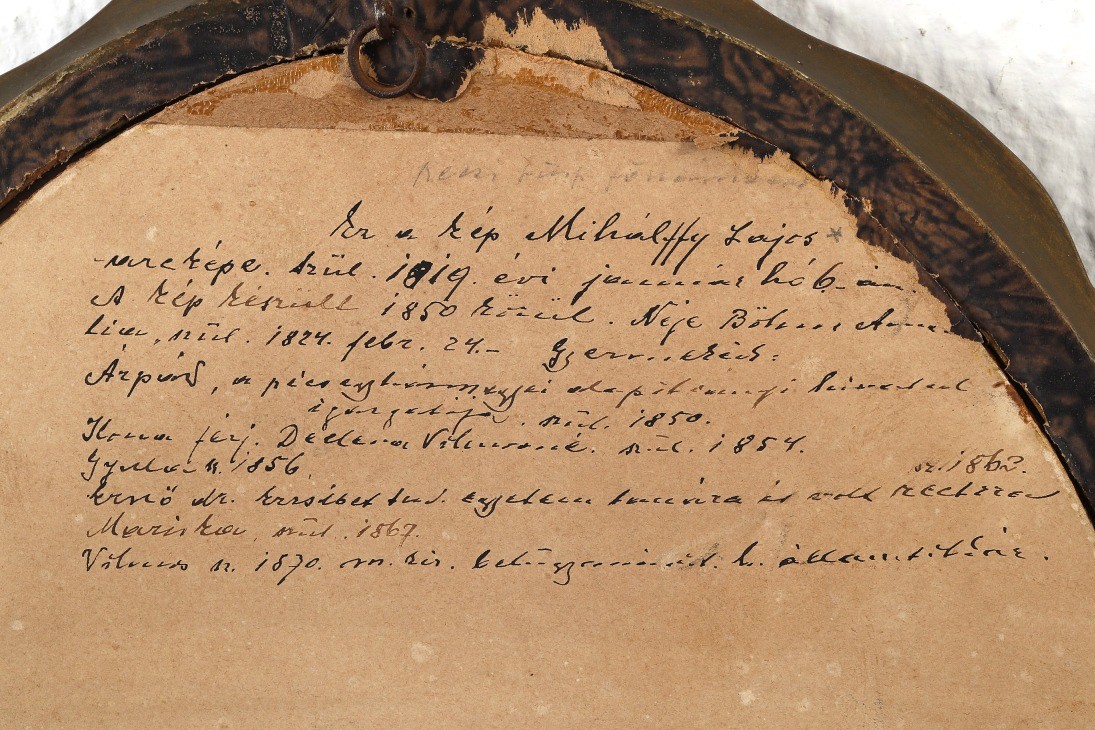 Ez a kép Mihálffy Lajos *
arcképe. szül. 1819. évi január hó 6-án
A kép készült 1850 körül. Neje Böhm Ama-
lia, szül. 1824. febr. 24.- Gyermekeik:
Árpád, a pécsegyházmegyei alapítványi hivatal
igazgatója. szül. 1850.
Ilona férj. Vilmosné. szül. 1854.
Gyula sz. 1856.
sz. 1862.
Ernő dr. Erzsébet tud. egyetem tanára és volt rectora
Mariska, szül. 1867.
Vilmos sz. 1870. m. kir. belügyminist. h. államtitkár.